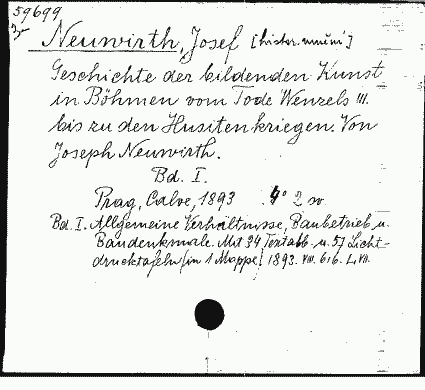 59699
Neuwirth, Josef [histor. umění]
Geschichte der bildenden Kunst
in Böhmen vom Tode Wenzels III.
bis zu den Husitenkriegen. Von
Joseph Neuwirth.
Bd. I.
Prag, Calve, 1893 4° 2 sv.
Bd. I. Allgemeine Verhältnisse, Baubetrieb u.
Baudenkmale. Mit 34 Textabb. u. 57 Licht-
drucktafeln (in 1 Mappe) 1893. VIII. 616. L VII.